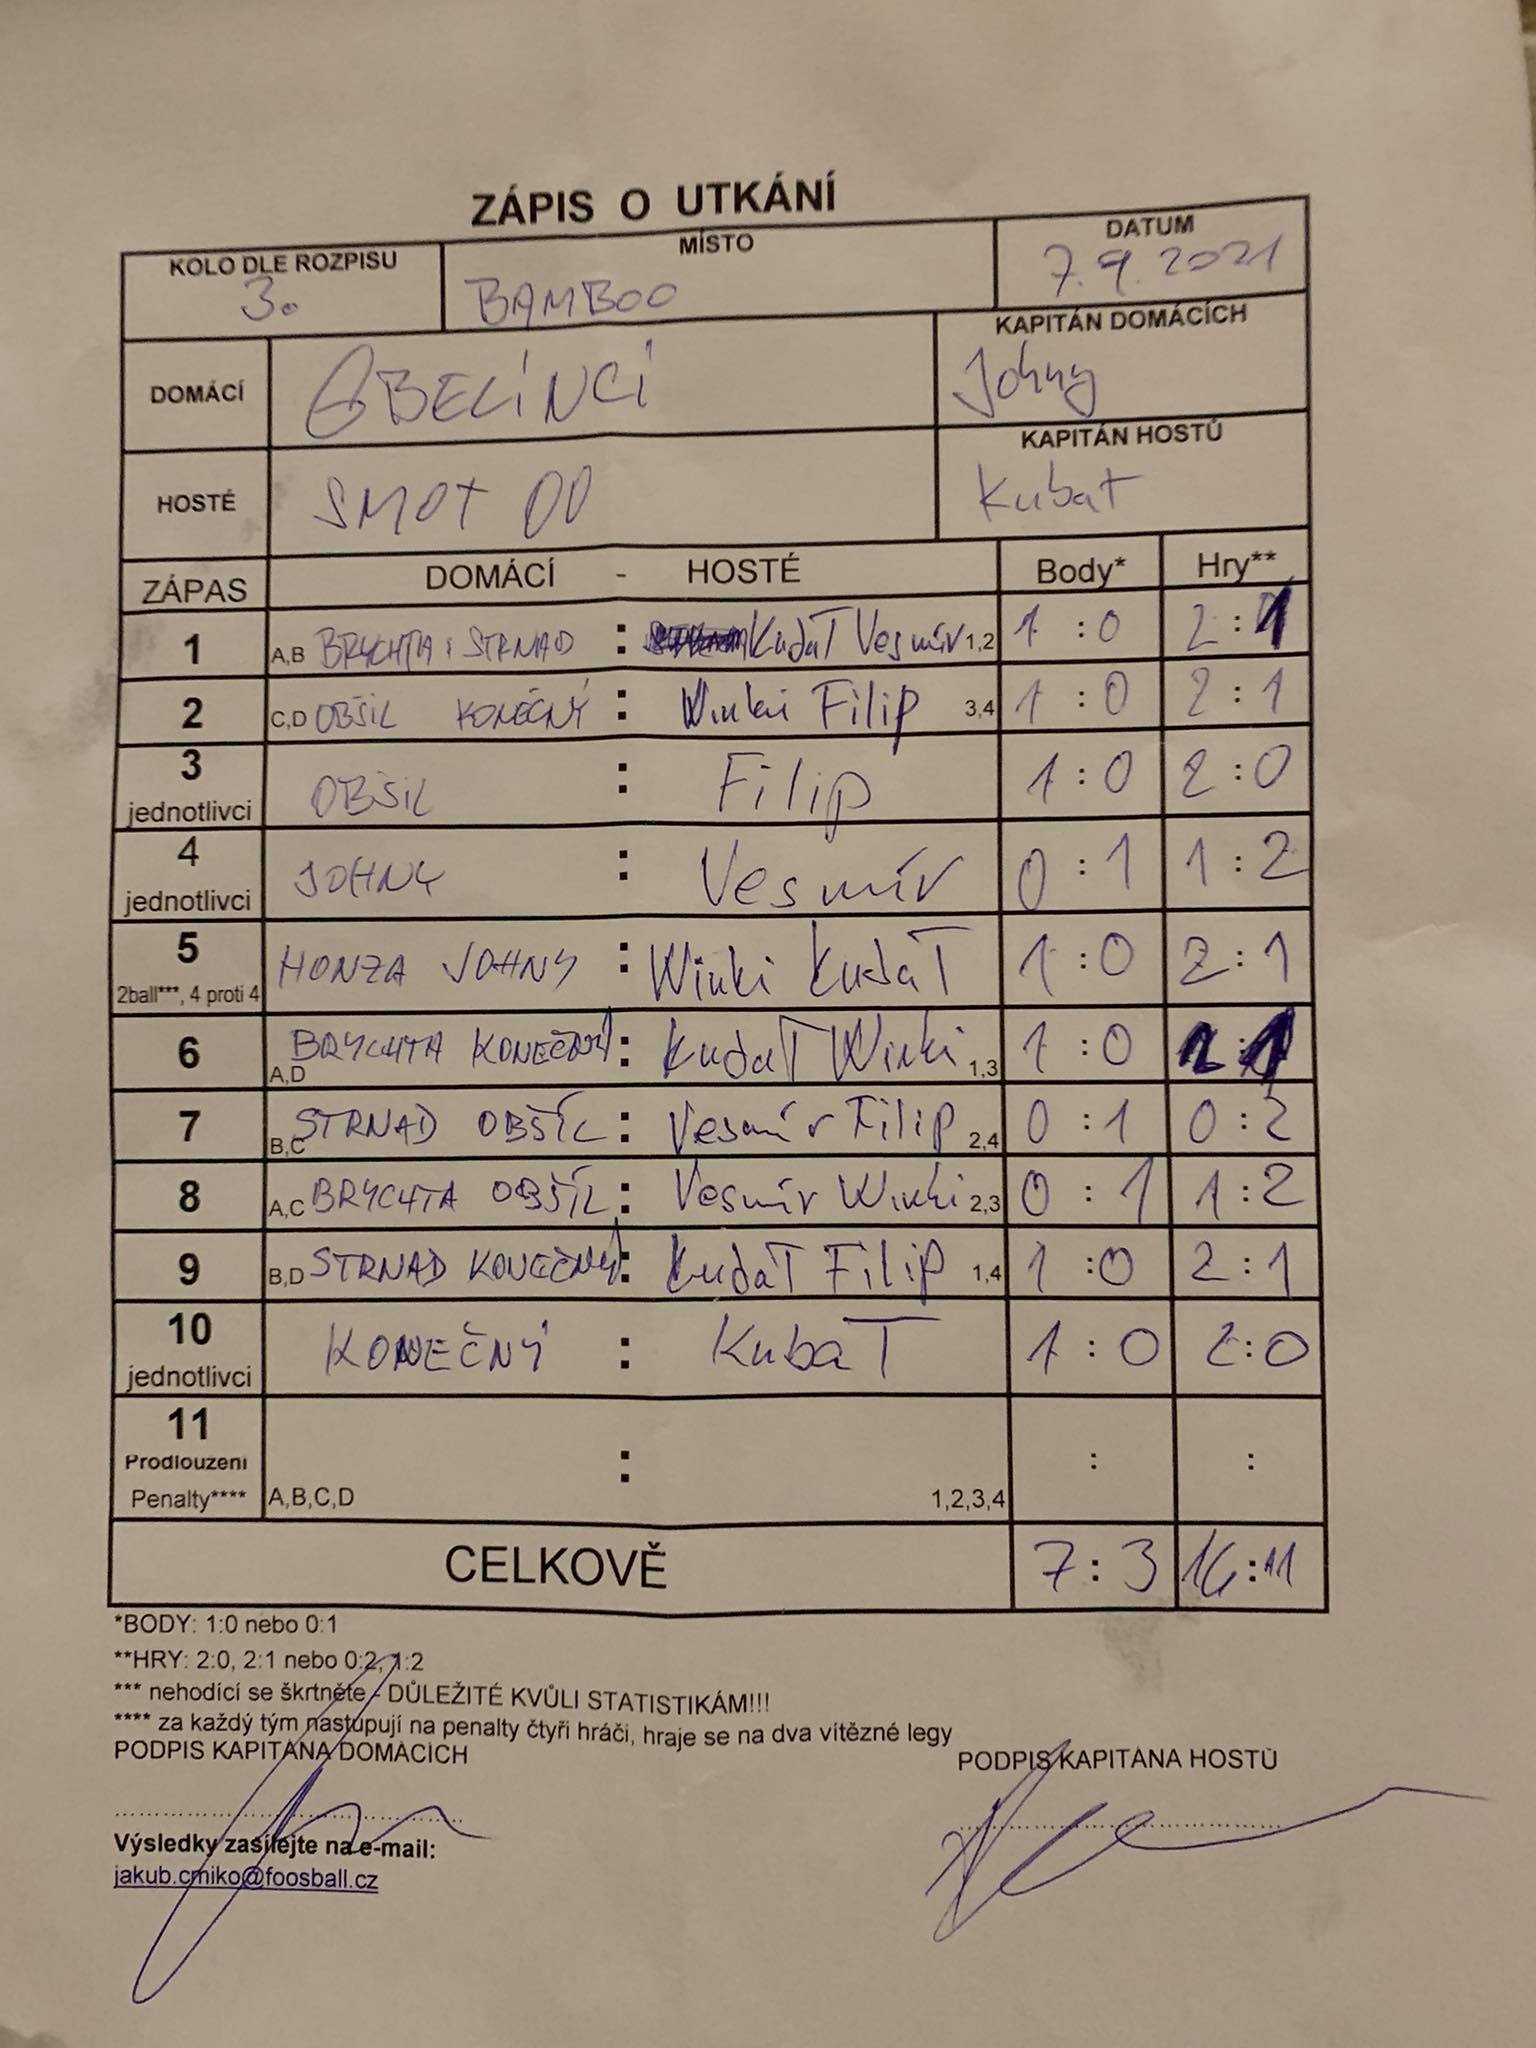 ZÁPIS O UTKÁNÍ
KOLO DLE ROZPISU MÍSTO DATUM
3. BAMBOO 7.9.2021
DOMÁCÍ GBELÍNCI KAPITÁN DOMÁCÍCH Johny
HOSTÉ SMOT DD KAPITÁN HOSTŮ Kubat
ZÁPAS DOMÁCÍ - HOSTÉ Body* Hry**
1 A,B BRYCHTA STRNAD : KubaT Vesmír 1,2 1:0 2:1
2 C,D OBŠIL KONEČNÝ : Winki Filip 3,4 1:0 2:1
3 jednotlivci OBŠIL : Filip 1:0 2:0
4 jednotlivci JOHNY : Vesmír 0:1 1:2
5 2ball***, 4 proti 4 HONZA JOHNY : Winki KubaT 1:0 2:1
6 A,D BRYCHTA KONEČNÝ : KubaT Winki 1,3 1:0 2:1
7 B,C STRNAD OBŠÍL : Vesmír Filip 2,4 0:1 0:2
8 A,C BRYCHTA OBŠÍL : Vesmír Winki 2,3 0:1 1:2
9 B,D STRNAD KONEČNÝ : KubaT Filip 1,4 1:0 2:1
10 jednotlivci KONEČNÝ : KubaT 1:0 2:0
11 Prodloužení : : :
Penalty**** A,B,C,D 1,2,3,4
CELKOVĚ 7:3 :11
*BODY: 1:0 nebo 0:1
**HRY: 2:0, 2:1 nebo 0:2, 1:2
*** nehodící se škrtněte - DŮLEŽITÉ KVŮLI STATISTIKÁM!!!
**** za každý tým nastupují na penalty čtyři hráči, hraje se na dva vítězné legy
PODPIS KAPITÁNA DOMÁCÍCH PODPIS KAPITÁNA HOSTŮ
Výsledky zasílejte na e-mail:
jakub.cmiko@foosball.cz